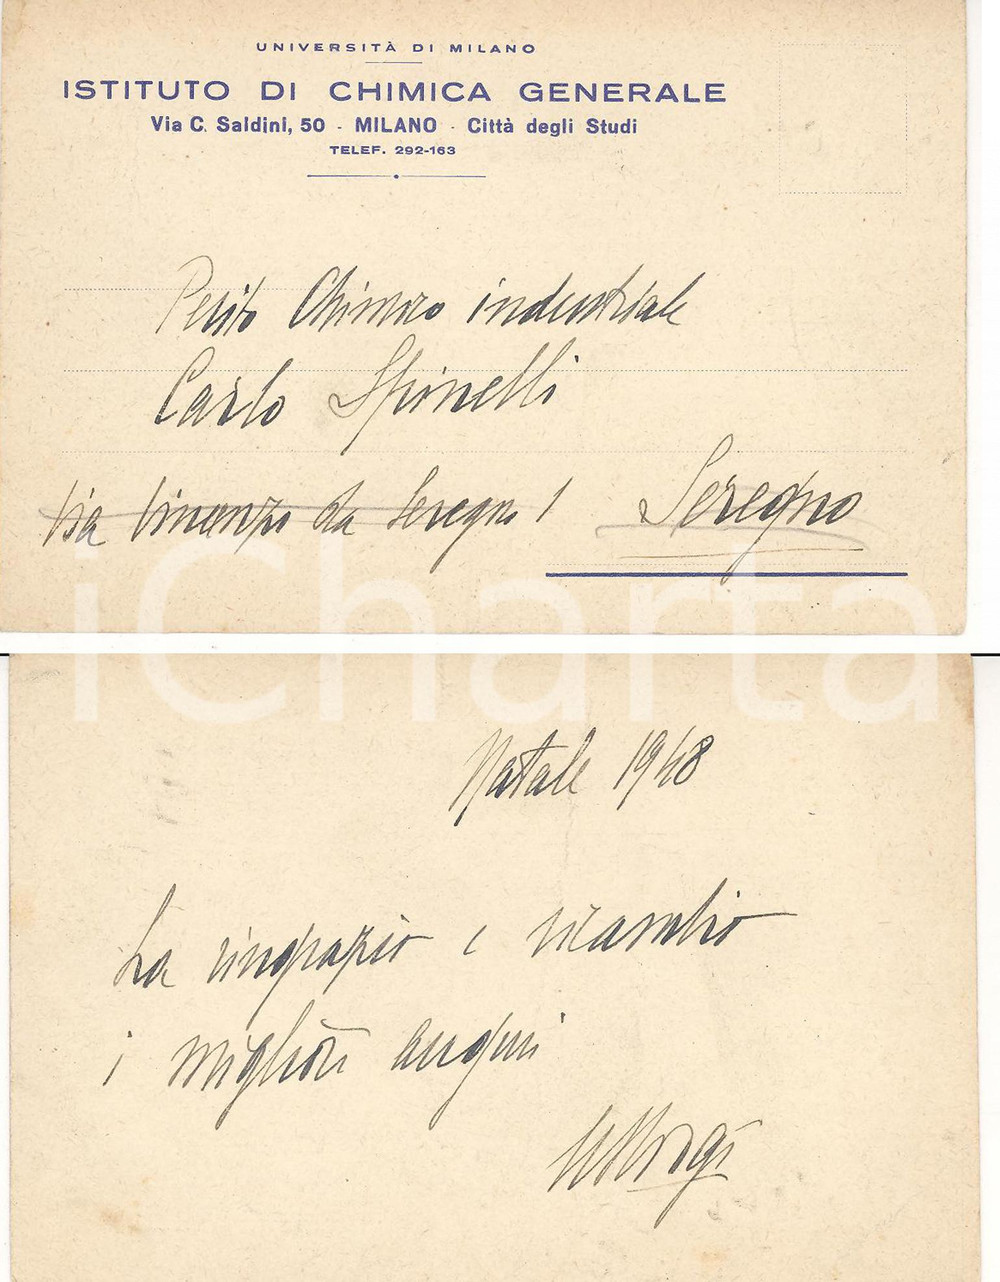 UNIVERSITÀ DI MILANO
ISTITUTO DI CHIMICA GENERALE
Via C. Saldini, 50 - MILANO - Città degli Studi
TELEF. 292-163
Perito Chimico industriale
Carlo Spinelli
Via Vincenzo da Seregno 1 Seregno
iCharta
Natale 1948
La ringrazio e ricambio
i migliori auguri